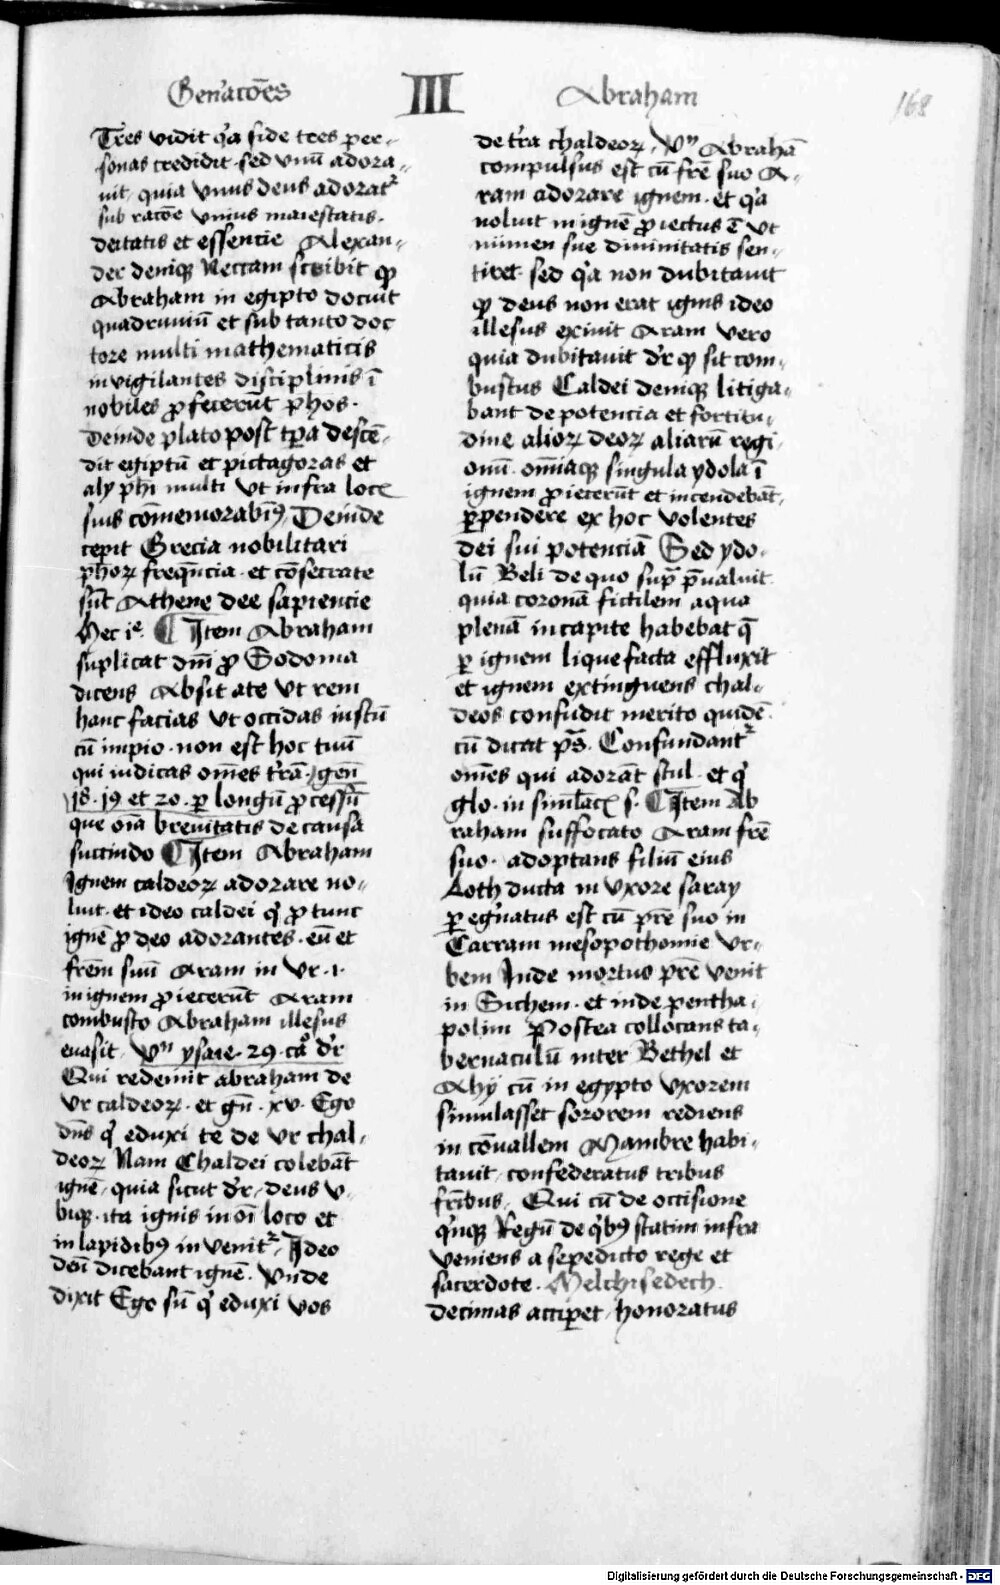 Gen'ac̄oēs III Abraham 168
Tres vidit q'a fide tres per-
sonas credidit · sed vnū adora-
uit, quia vnus deus adorat᷑
sub rac̄oe vnius maiestatis ·
deitatis et essencie Alexan-
der deniqꝫ Neccam scribit ꝙ
Abraham in egipto docuit
quadruuiū et sub tanto doc
tore multi mathematicis
inuigilantes disciplinis ī
nobiles ꝓfecerūt ph̄os ·
Deinde plato post tp̄a descē-
dit egiptū et pictagoras et
aly ph̄i multi vt infra locꝭ
suis cōmemorabimꝰ, Deinde
cepit Grecia nobilitari
ph̄oꝝ freqūncia · et cōsecrate
sūt Athene dee sapiencie
Hec ie. ¶ Item Abraham
suplicat dn̄m ꝓ Sodoma
dicens Absit ate vt rem
hanc facias vt occidas iustū
cū impio · non est hoc tuū
qui iudicas om̄es tr̄ā · gen̄
18 · 19 et 20 · ꝑ longū ꝓcessū
que oīa breuitatis de causa
succindo ¶ Item Abraham
Ignem caldeoꝝ adorare no-
luit · et ideo caldei q' ꝓ tunc
ignē ꝓ deo adorantes · eū et
frēm suū Aram in vr · 1 ·
in ignem ꝓiecerūt Aram
combusto Abraham illesus
euasit, Vn̄ ysaie · 29 · cao dr̄
Qui redemit abraham de
vr caldeoꝝ · et gn̄ · xv · Ego
dn̄s q' eduxi te de vr chal-
deoꝝ Nam Chaldei colebāt
ignē, quia sicut dr̄, deus v-
biqꝫ · ita ignis in oī loco et
in lapidibꝰ inuenit᷑, Ideo
deū dicebant ignē · Vnde
dixit Ego sū q' eduxi vos
de tr̄a chaldeoꝝ, Vn̄ Abrahā
compulsus est cū frē suo A-
ram adorare ignem · et q'a
noluit in ignē ꝓiectus ē vt
numen sue diuinitatis sen-
tiret · sed q'a non dubitauit
ꝙ deus non erat ignis ideo
illesus exiuit Aram vero
quia dubitauit dr̄ ꝙ sit com-
bustus Caldei deniqꝫ litiga-
bant de potencia et fortitu-
dine alioꝝ deoꝝ aliarū regi-
onū · om̄iaqꝫ singula ydola ī
ignem ꝓiecerūt et incendebāt,
ꝑpendere ex hoc volentes
dei sui potenciā Sed ydo-
lū Beli de quo sup̄ p̄ualuit
quia coronā fictilem aqua
plenā in capite habebat q̄
ꝑ ignem liquefacta effluxit
et ignem extinguens chal-
deos confudit merito quidē ·
cū dicat ps̄ · Confundant᷑
om̄es qui adorāt scul · et q'
glo · in siml̄acꝭ s · ¶ Item Ab
raham suffocato Aram frē
suo · adoptans filiū eius
Loth ducta in vxore saray
ꝑegrinatus est cū pr̄e suo in
Carram mesopothomie vr-
bem Inde mortuo pr̄e venit
in Sichem · et inde pentha-
polim Postea collocans ta-
bernaculū inter Bethel et
Ahy cū in egypto vxorem
simulasset sororem rediens
in cōuallem Mambre habi-
tauit, confederatus tribus
fr̄ibus, Qui cū de occisione
q'nqꝫ Regū de q'bꝰ statim infra
veniens a sepedicto rege et
sacerdote · Melchisedech
decimas acciꝑet, honoratus
Digitalisierung gefördert durch die Deutsche Forschungsgemeinschaft - DFG